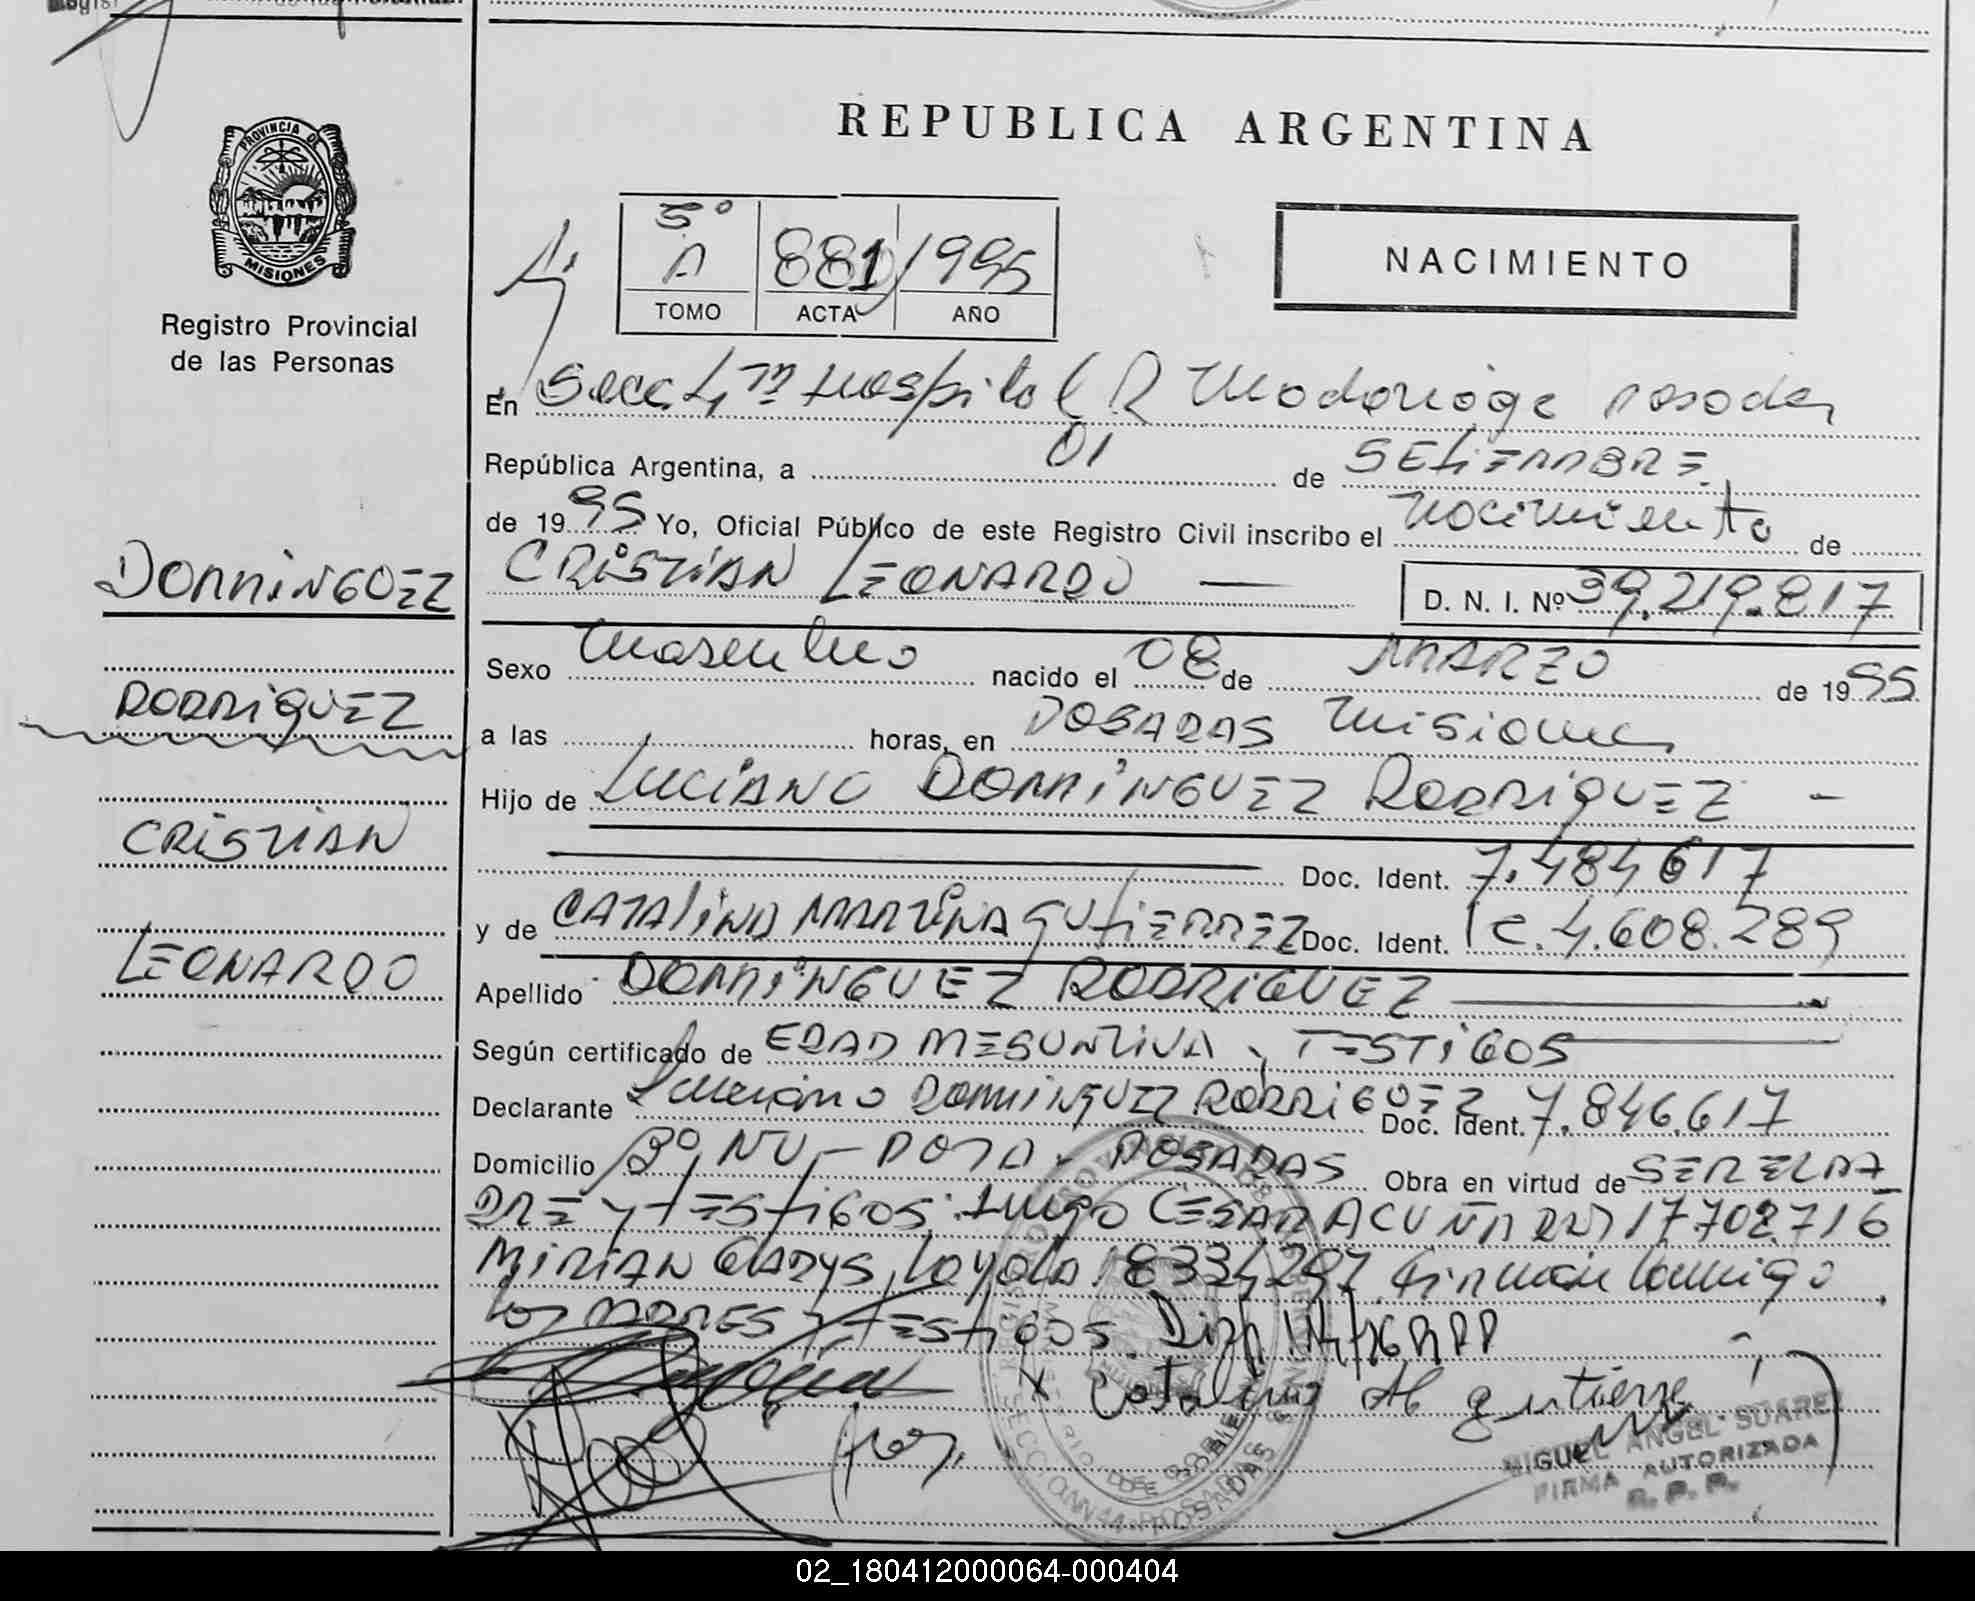 REPUBLICA ARGENTINA
PROVINCIA DE
MISIONES
Registro Provincial
de las Personas
5º
A 881 1995
TOMO ACTA AÑO
NACIMIENTO
En Secc. 4ta Hospital R Madariaga Posadas
República Argentina, a 01 de SETIEMBRE
de 1995 Yo, Oficial Público de este Registro Civil inscribo el Nacimiento de
CRISTIAN LEONARDO D. N. I. Nº 39.219.817
Sexo Masculino nacido el 08 de MARZO de 1995
a las horas, en POSADAS Misiones
Hijo de LUCIANO DOMINGUEZ RODRIGUEZ -
Doc. Ident. 7.484617
y de CATALINA MARTINA GUTIERREZ Doc. Ident. lc. 4.608.289
Apellido DOMINGUEZ RODRIGUEZ
Según certificado de EDAD PRESUNTIVA y TESTIGOS
Declarante Luciano DOMINGUEZ RODRIGUEZ Doc. Ident. 7.846.617
Domicilio Bº NU - POSADAS Obra en virtud de SER EL PA
DRE Y TESTIGOS: Hugo CESAR ACUÑA DNI 17702716
MIRIAN GLADYS Loyola 8334297 firman conmigo
los PADRES y TESTIGOS. Disp
Catalina M gutierrez
MIGUEL ANGEL SUAREZ
FIRMA AUTORIZADA
R. P. P.
DOMINGUEZ
RODRIGUEZ
CRISTIAN
LEONARDO
02_180412000064-000404